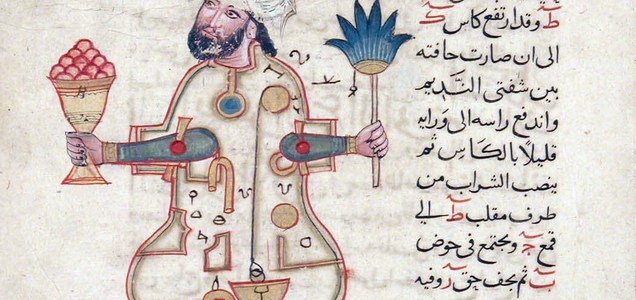 ط وقد ارتفع كاس ك
الى ان صارت حافته
بين شفتى النَّديم
واندفع راسه الى ورايه
قليلًا بالكَاسِ ثم
ينصب الشراب من
طرف مقلب ط الي
قمع ويجتمع فى حوض
ثم يجف حق وفيه